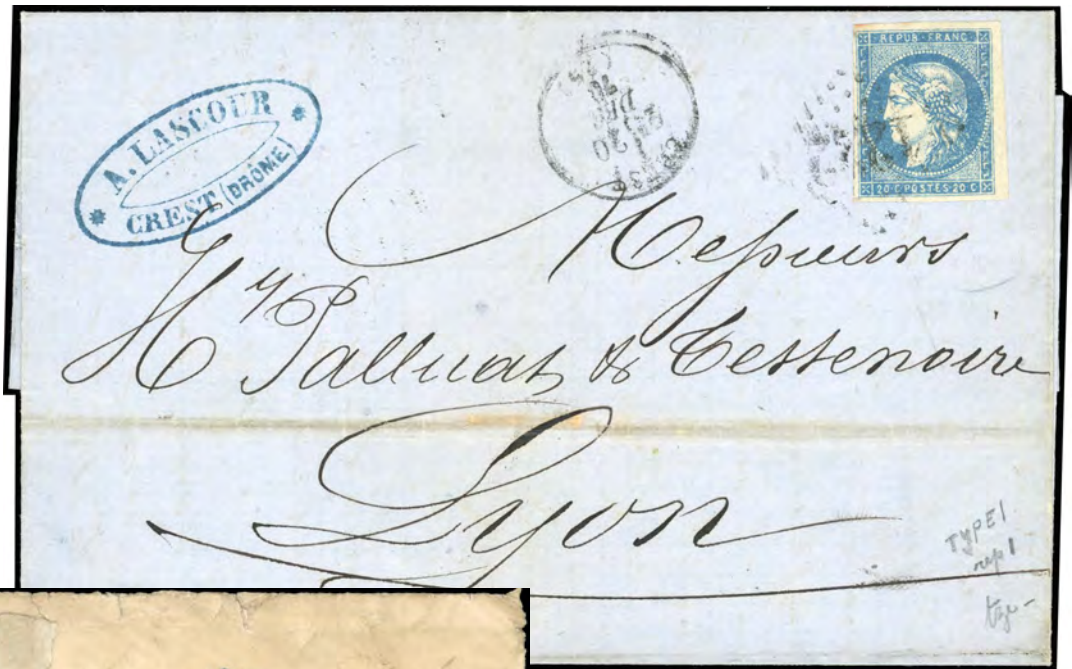 A. LASCOUR
CREST (DRÔME)
REPUB. FRANC.
20 C. POSTES. 20 C
Messieurs
Hy Palluat & Testenoire
Lyon
TYPE I
rep I